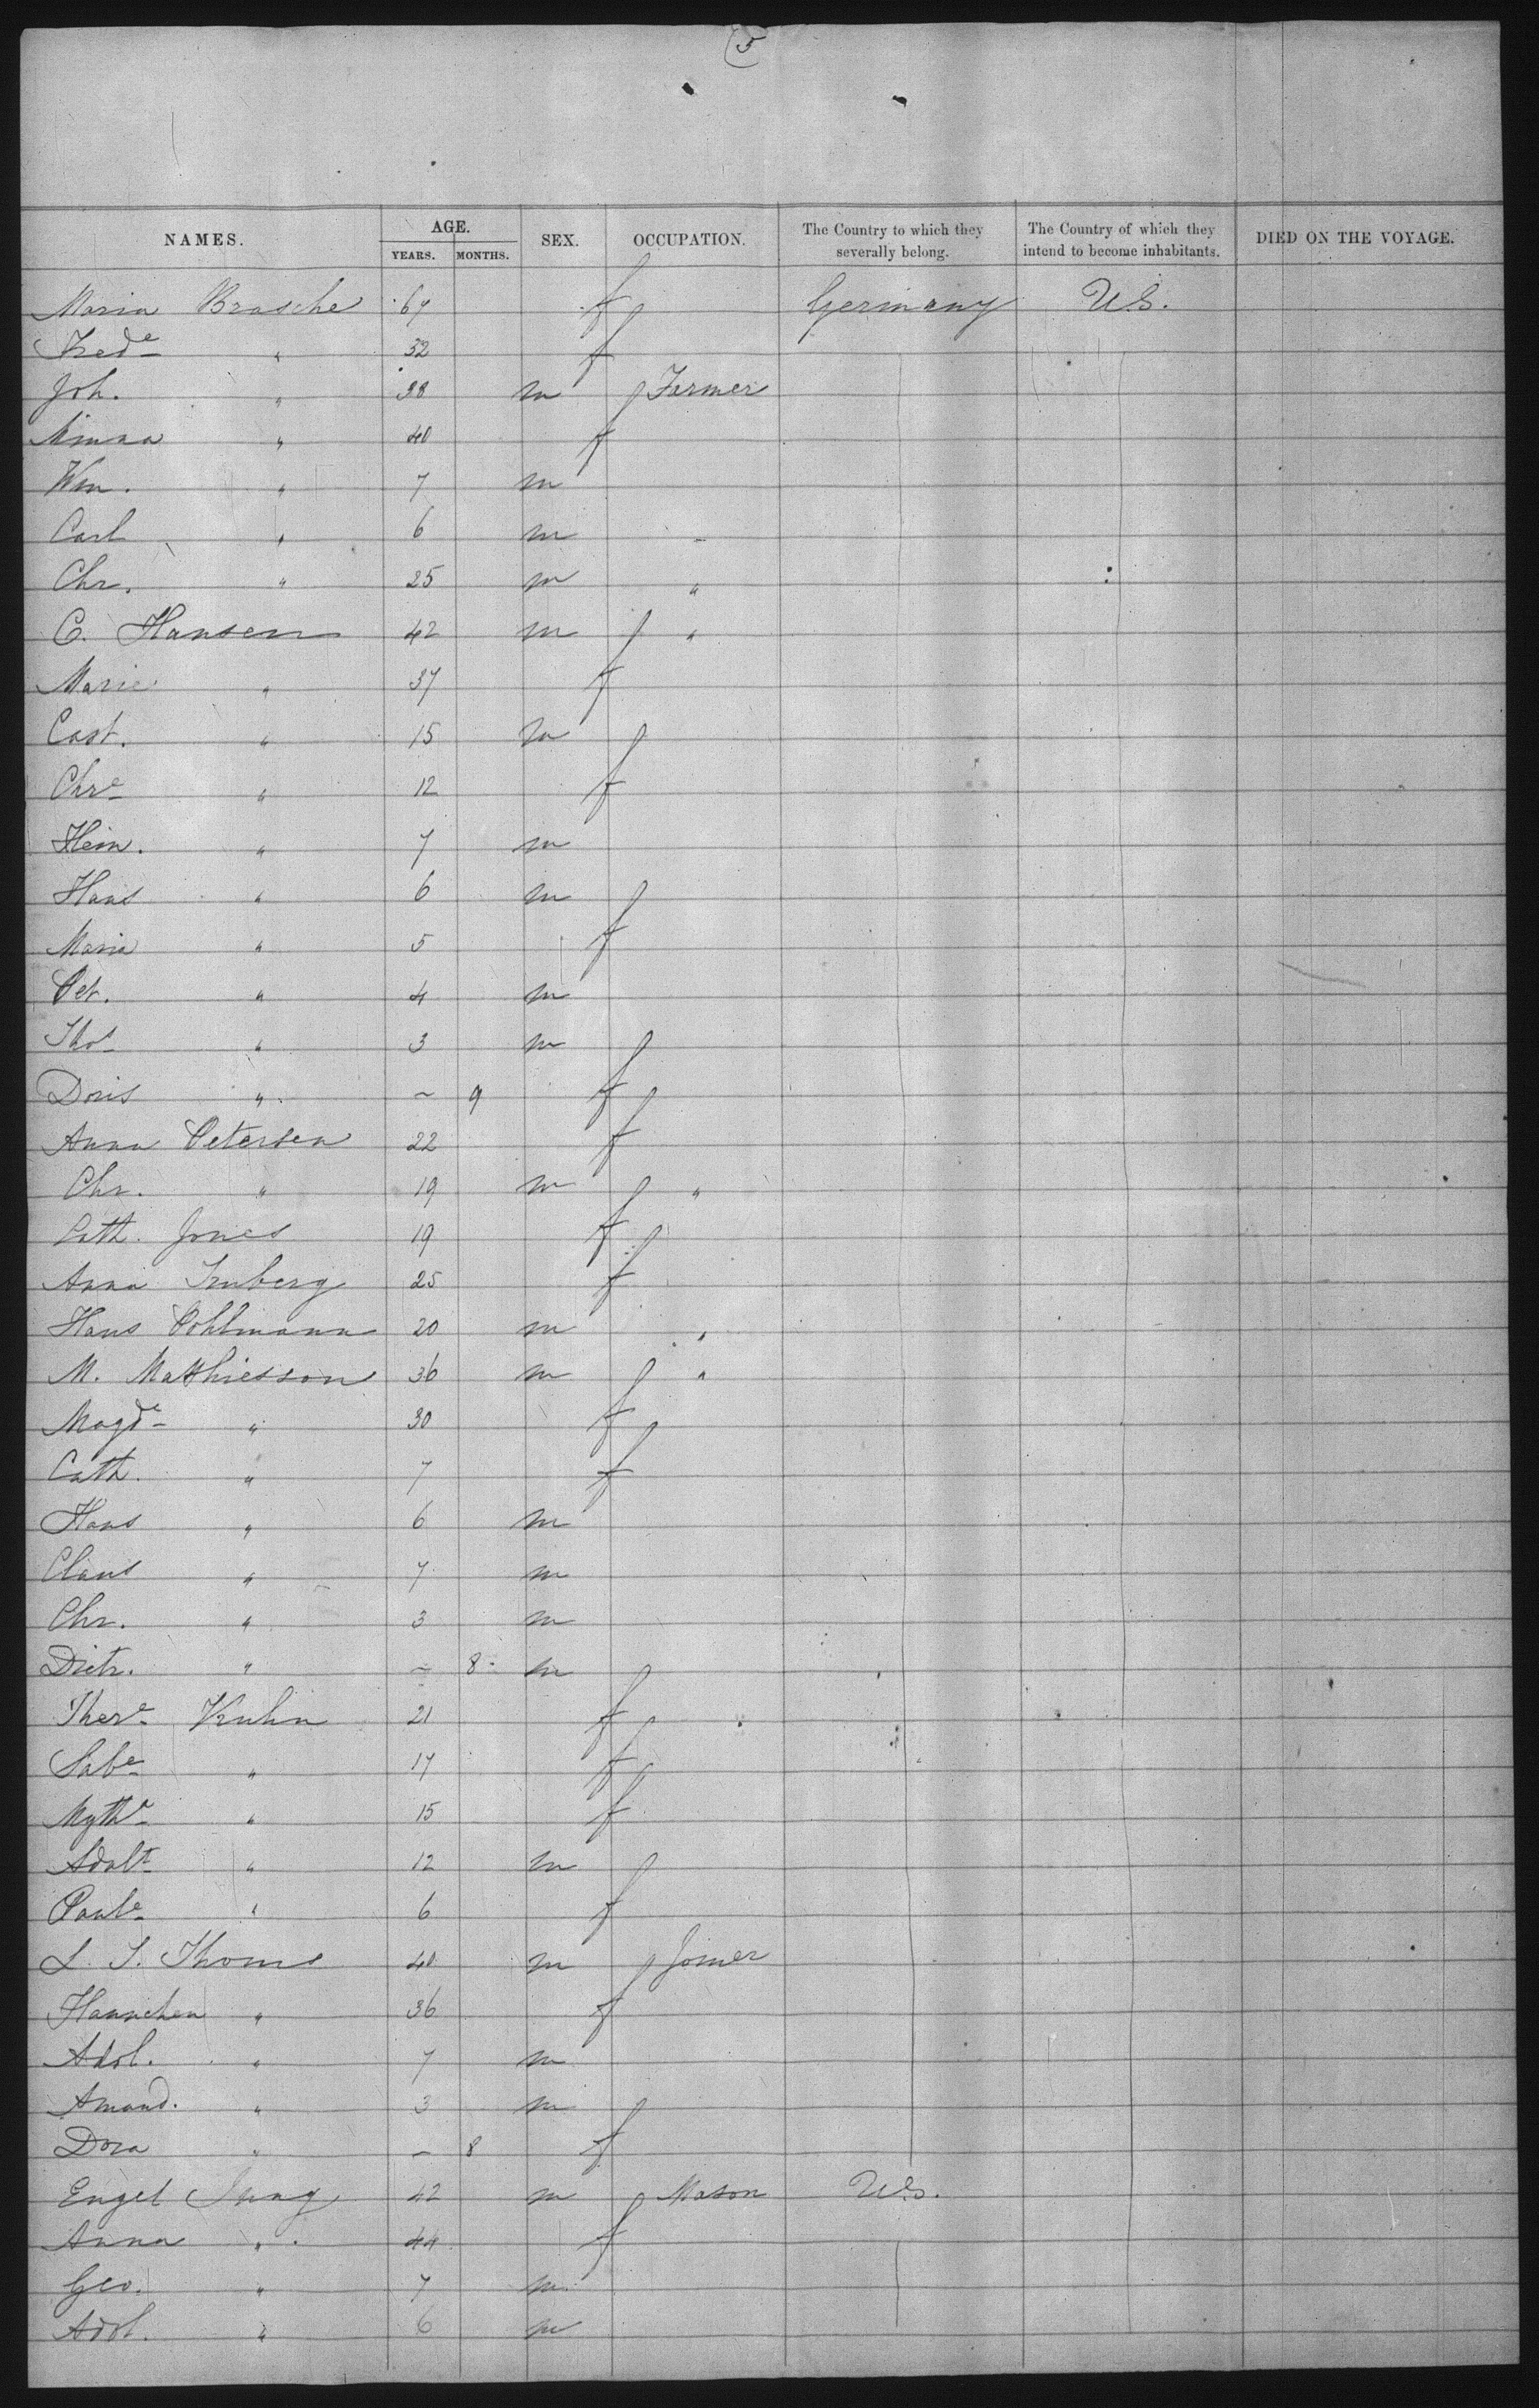 5
NAMES. AGE. YEARS. MONTHS. SEX. OCCUPATION. The Country to which they severally belong. The Country of which they intend to become inhabitants. DIED ON THE VOYAGE.
Maria Brasche 67 f Germany U.S.
Fredᵉ " 32 f
Joh. " 38 m Farmer
Minna " 40 f
Wm. " 7 m
Carl " 6 m -
Chr. " 25 m "
C. Hansen 42 m "
Marie " 37 f
Cast. " 15 m
Chrᵉ " 12 f
Hein. " 7 m
Hans " 6 m
Maria " 5 f
Pet. " 4 m
Thoˢ " 3 m
Doris " ~ 9 f
Anna Petersen 22 f
Chr. " 19 m "
Cath. Jones 19 f
Anna 25 f
Hans Pohlmann 20 m "
M. Matthiesson 36 m "
Magdᵉ " 30 f
Cath. " 7 f
Hans " 6 m
Claus " 7 m
Chr. " 3 m
Dietr. " ~ 8 m
Therᵉ Kuhn 21 f
Sabᵉ " 17 f
" 15 f
Adalᵗ " 12 m
Paulᵉ " 6 f
L. J. Thoms 40 m Joiner
Hannchen " 36 f
Adol. " 7 m
Amand. " 3 m
Dora " - 8 f
Engel Jung 42 m Mason U.S.
Anna " 44 f
Geo. " 7 m
Adol. " 6 m